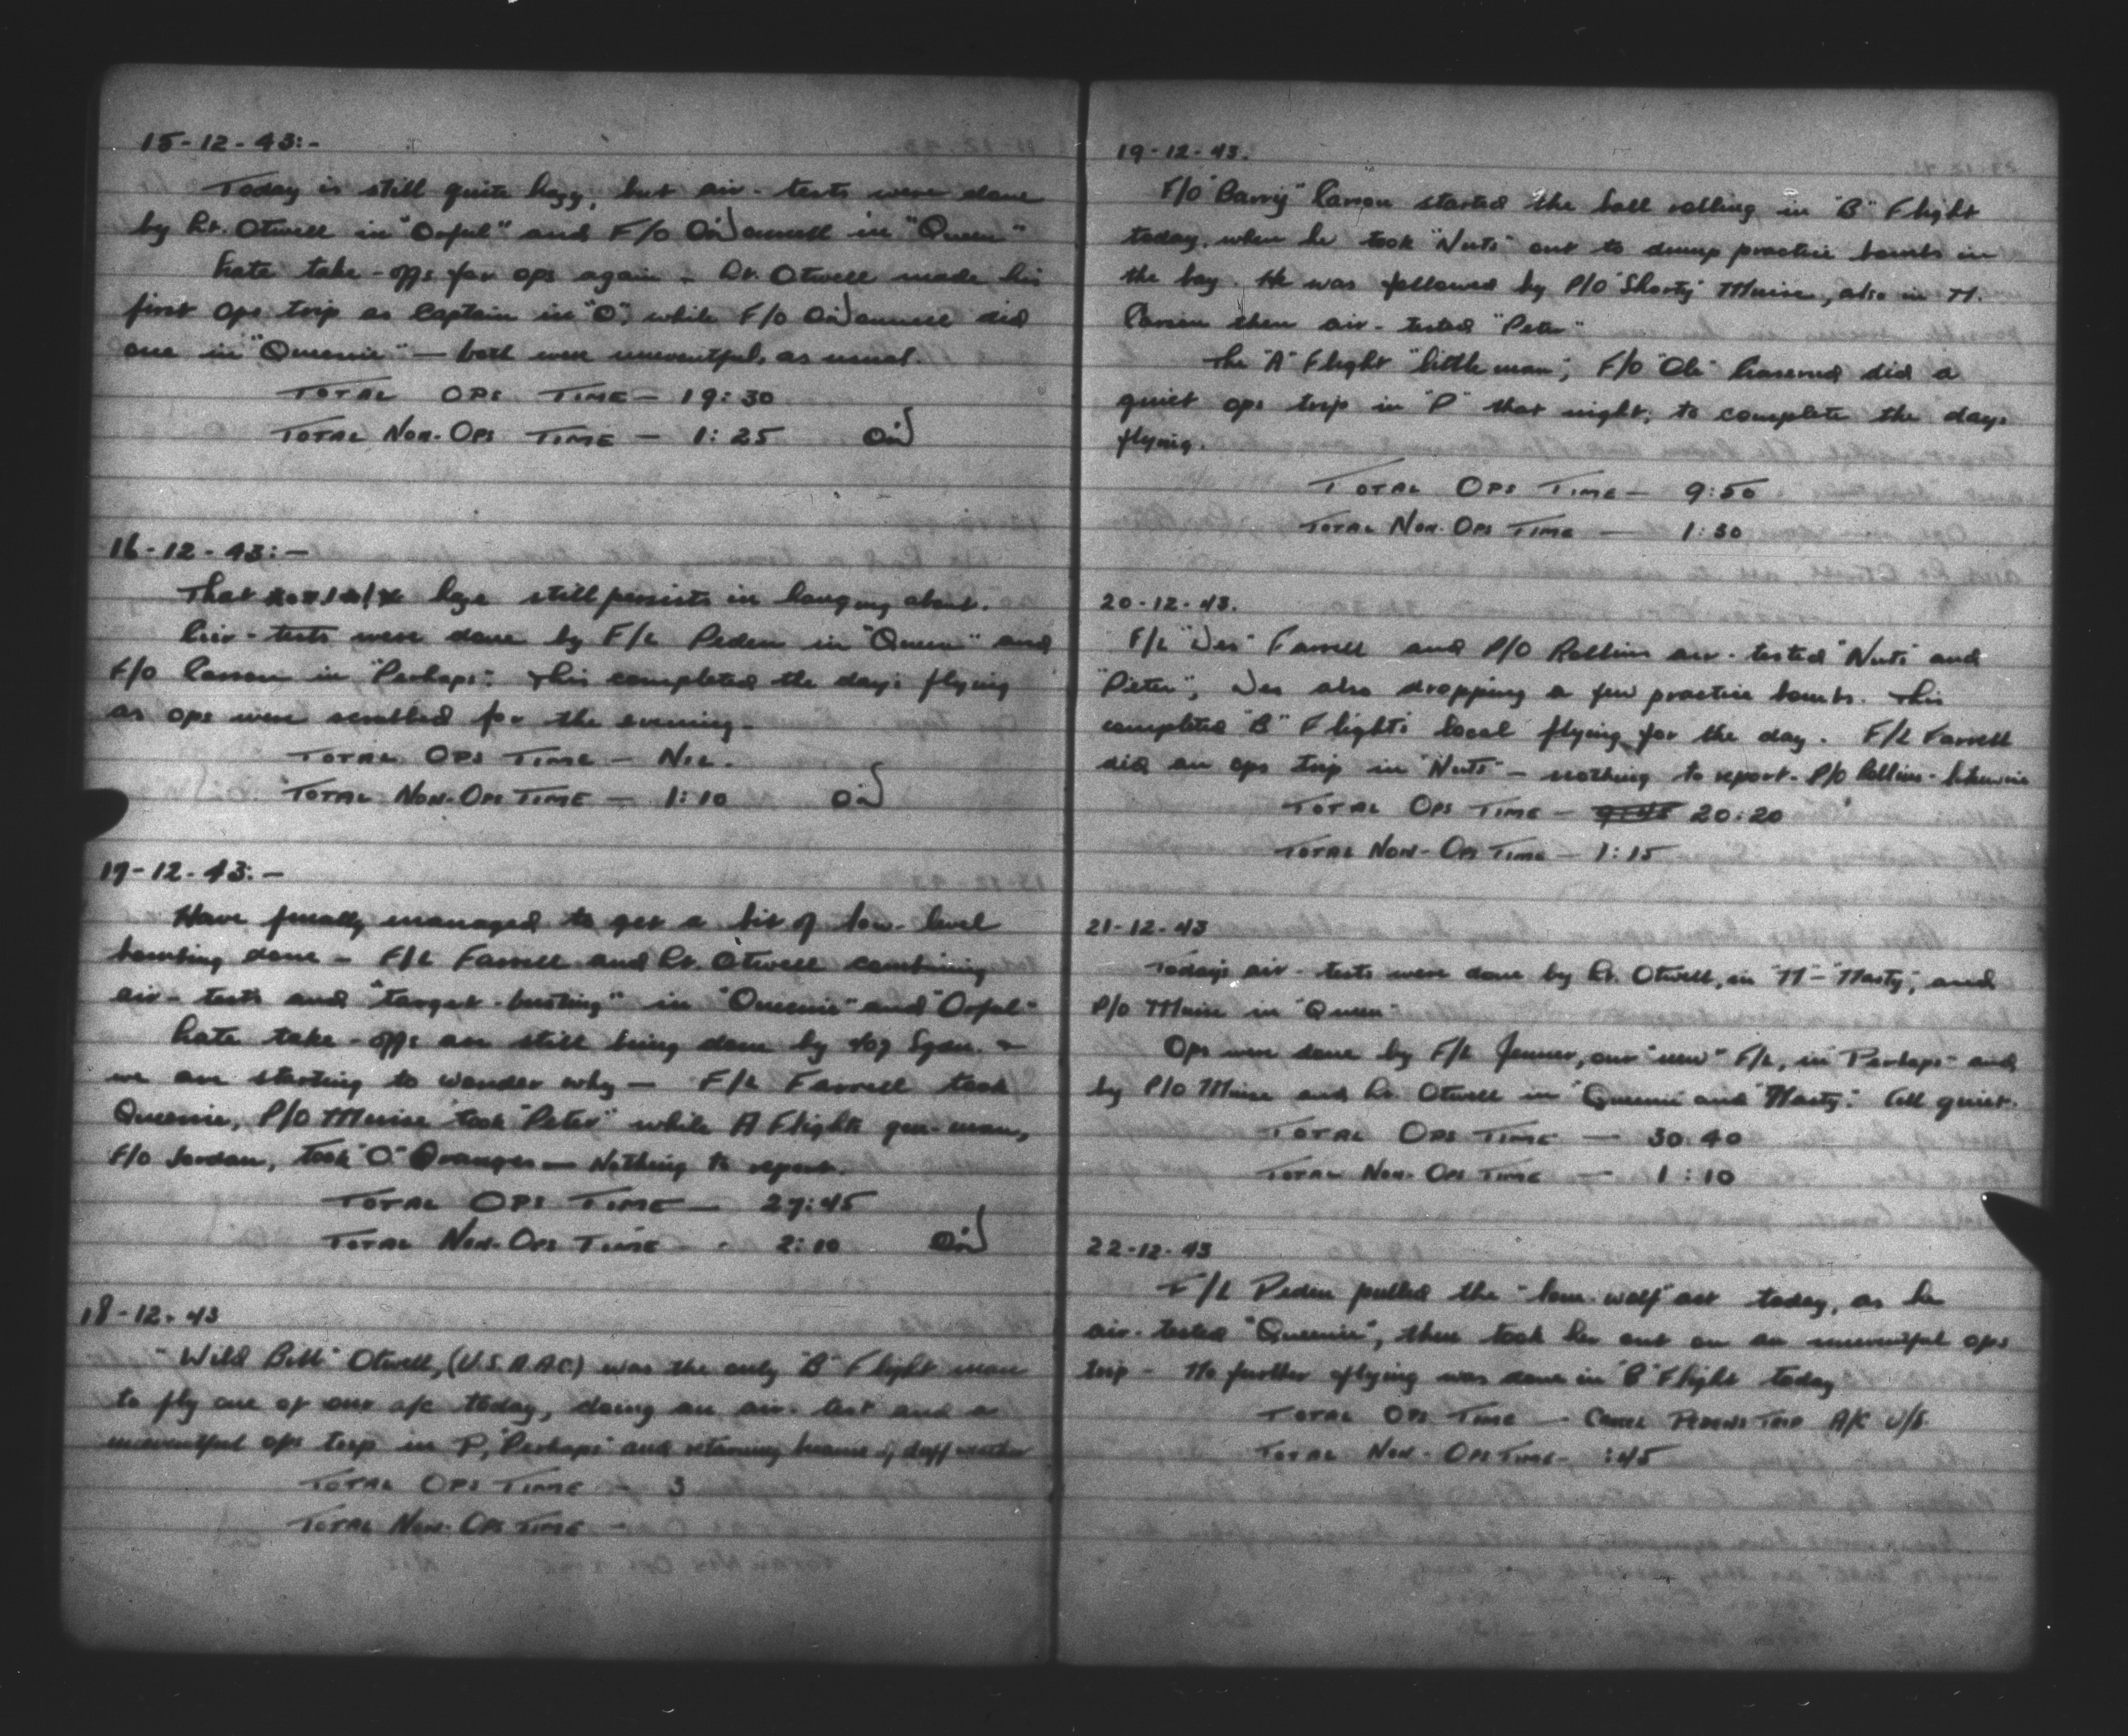 15-12-43:-
Today is still quite hazy, but air-tests were done
by Lt. Otwell in "Orful" and F/O O'Donnell in "Queen"
Late take-offs for ops again - Lt. Otwell made his
first ops trip as Captain in "O", while F/O O'Donnell did
one in "Queenie" — both were uneventful, as usual.
TOTAL OPS TIME - 19:30
TOTAL NON-OPS TIME - 1:25
16-12-43:-
That haze still persists in hanging about.
Air-tests were done by F/L Peden in "Queen" and
F/O Larson in "Perhaps". This completed the day's flying
as ops were scrubbed for the evening.
TOTAL OPS TIME - NIL.
TOTAL NON-OPS TIME - 1:10
17-12-43:-
Have finally managed to get a bit of low-level
bombing done - F/L Farrell and Lt. Otwell combining
air-tests and "target-busting" in "Queenie" and "Orful"
Late take-offs are still being done by Sqdn.
we are starting to wonder why — F/L Farrell took
Queenie, P/O Muise took "Peter" while A Flight's gen-man,
F/O Jordan, took "O" Oranges — Nothing to report.
TOTAL OPS TIME - 27:45
TOTAL NON-OPS TIME - 2:10
18-12-43
"Wild Bill" Otwell, (U.S.A.A.C.) was the only "B" Flight man
to fly one of our a/c today, doing an air-test and a
uneventful ops trip in P, "Perhaps" and returning because of duff weather
TOTAL OPS TIME - 3
TOTAL NON-OPS TIME -
19-12-43.
F/O "Barry" Larson started the ball rolling in "B" Flight
today, when he took "Nuts" out to dump practice bombs in
the bay. He was followed by P/O "Shorty" Muise, also in N.
Larson then air-tested "Peter"
The "A" Flight "little man", F/O "Ole" did a
quiet ops trip in "P" that night, to complete the days
flying.
TOTAL OPS TIME - 9:50
TOTAL NON-OPS TIME — 1:30
20-12-43.
F/L "Wes" Farrell and P/O Rollins air-tested "Nuts" and
"Pieter", Wes also dropping a few practice bombs. This
completed "B" Flight's local flying for the day. F/L Farrell
did an ops trip in "Nuts" - nothing to report - P/O Rollins - likewise
TOTAL OPS TIME - 9:45 20:20
TOTAL NON-OPS TIME - 1:15
21-12-43
Today's air-tests were done by Lt. Otwell, in "N" - "Nasty", and
P/O Muise in "Queen"
Ops were done by F/L Jenner, our "new" F/L, in "Perhaps" and
by P/O Muise and Lt. Otwell in "Queenie" and "Nasty". All quiet.
TOTAL OPS TIME — 30:40
TOTAL NON-OPS TIME — 1:10
22-12-43
F/L Peden pulled the "lone-wolf" act today, as he
air-tested "Queenie", then took her out on an uneventful ops
trip - No further flying was done in "B" Flight today
TOTAL OPS TIME - CANCEL PEDENS TRIP A/C U/S.
TOTAL NON-OPS TIME - :45